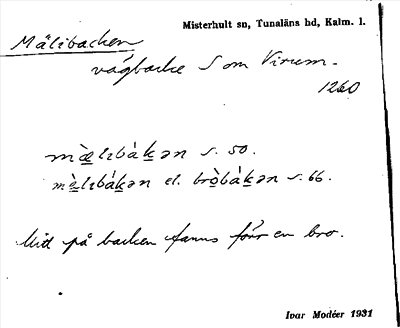 Misterhult sn, Tunaläns hd, Kalm. l.
Mälibacken
vägbacke S om Virum.
1260
mæ̀lıbákən s. 50.
mæ̀lıbákən el. bròbákən s. 66.
Mitt på backen fanns förr en bro.
Ivar Modéer 1931